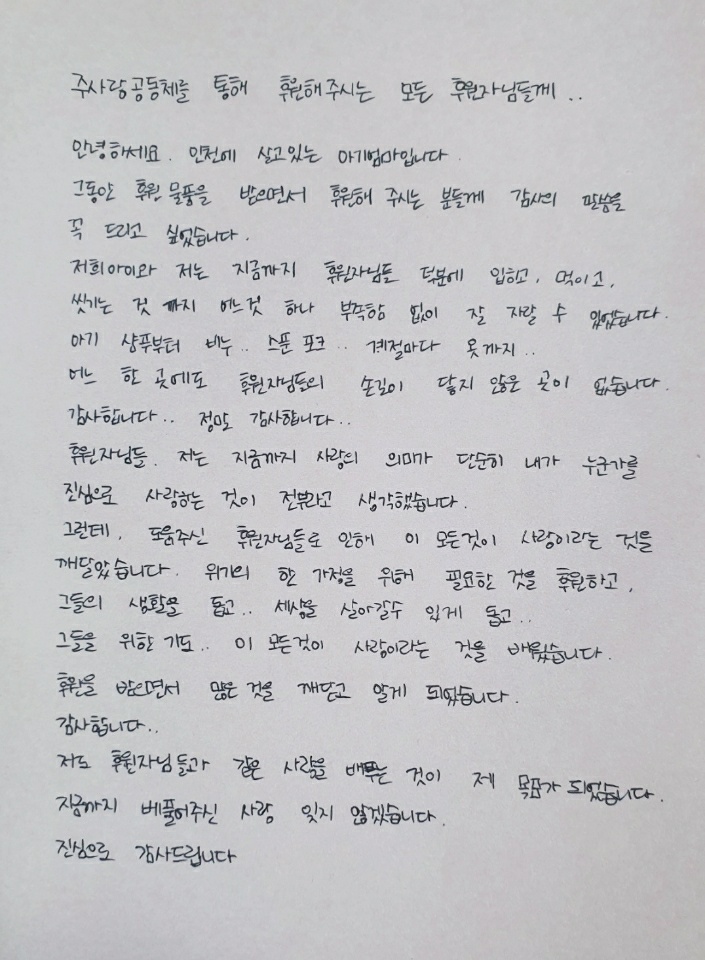 주사랑공동체를 통해 후원해주시는 모든 후원자님들께..
안녕하세요. 인천에 살고있는 아기엄마입니다.
그동안 후원 물품을 받으면서 후원해 주시는 분들께 감사의 말씀을
꼭 드리고 싶었습니다.
저희아이와 저는 지금까지 후원자님들 덕분에 입히고, 먹이고,
씻기는 것 까지 어느것 하나 부족함 없이 잘 자랄 수 있었습니다.
아기 샴푸부터 비누.. 스푼 포크.. 계절마다 옷까지..
어느 한 곳에도 후원자님들의 손길이 닿지 않은 곳이 없습니다.
감사합니다.. 정말 감사합니다..
후원자님들. 저는 지금까지 사랑의 의미가 단순히 내가 누군가를
진심으로 사랑하는 것이 전부라고 생각했습니다.
그런데, 도움주신 후원자님들로 인해 이 모든것이 사랑이라는 것을
깨달았습니다. 위기의 한 가정을 위해 필요한 것을 후원하고,
그들의 생활을 돕고.. 세상을 살아갈수 있게 돕고..
그들을 위한 기도.. 이 모든것이 사랑이라는 것을 배웠습니다.
후원을 받으면서 많은 것을 깨닫고 알게 되었습니다.
감사합니다..
저도 후원자님들과 같은 사랑을 베푸는 것이 제 목표가 되었습니다.
지금까지 베풀어주신 사랑 잊지 않겠습니다.
진심으로 감사드립니다